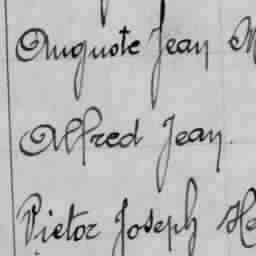 Auguste Jean
Alfred Jean.
Victor Joseph